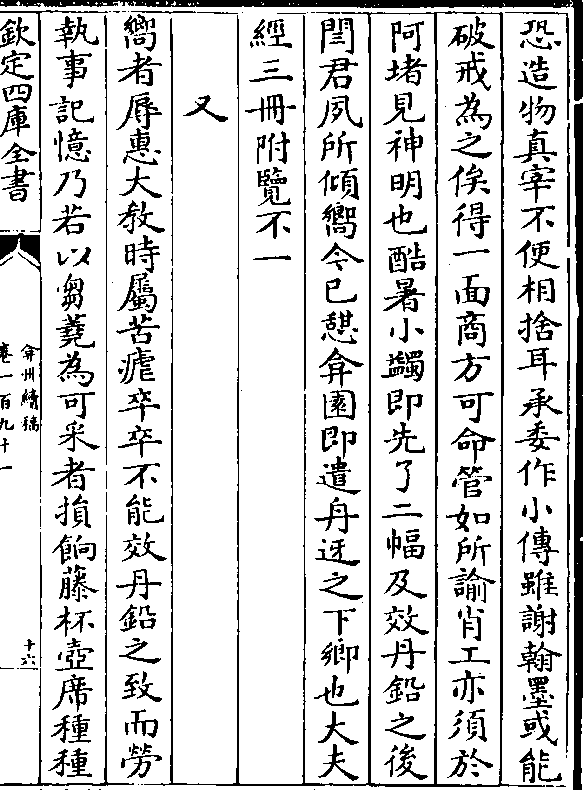 恐造物真宰不便相捨耳承委作小傳雖謝翰墨或能
破戒為之俟得一面商方可命管如所諭肖工亦須於
阿堵見神明也酷暑小蠲即先了二幅及效丹鉛之後
閏君夙所傾嚮今已憇弇園即遣舟迓之下鄉也大夫
經三冊附覽不一
又
嚮者辱惠大教時屬苦瘧卒卒不能效丹鉛之致而勞
執事記憶乃若以芻蕘為可采者損餉藤杯壺席種種
欽定四庫全書
弇州續稿
卷一百九十一
十六